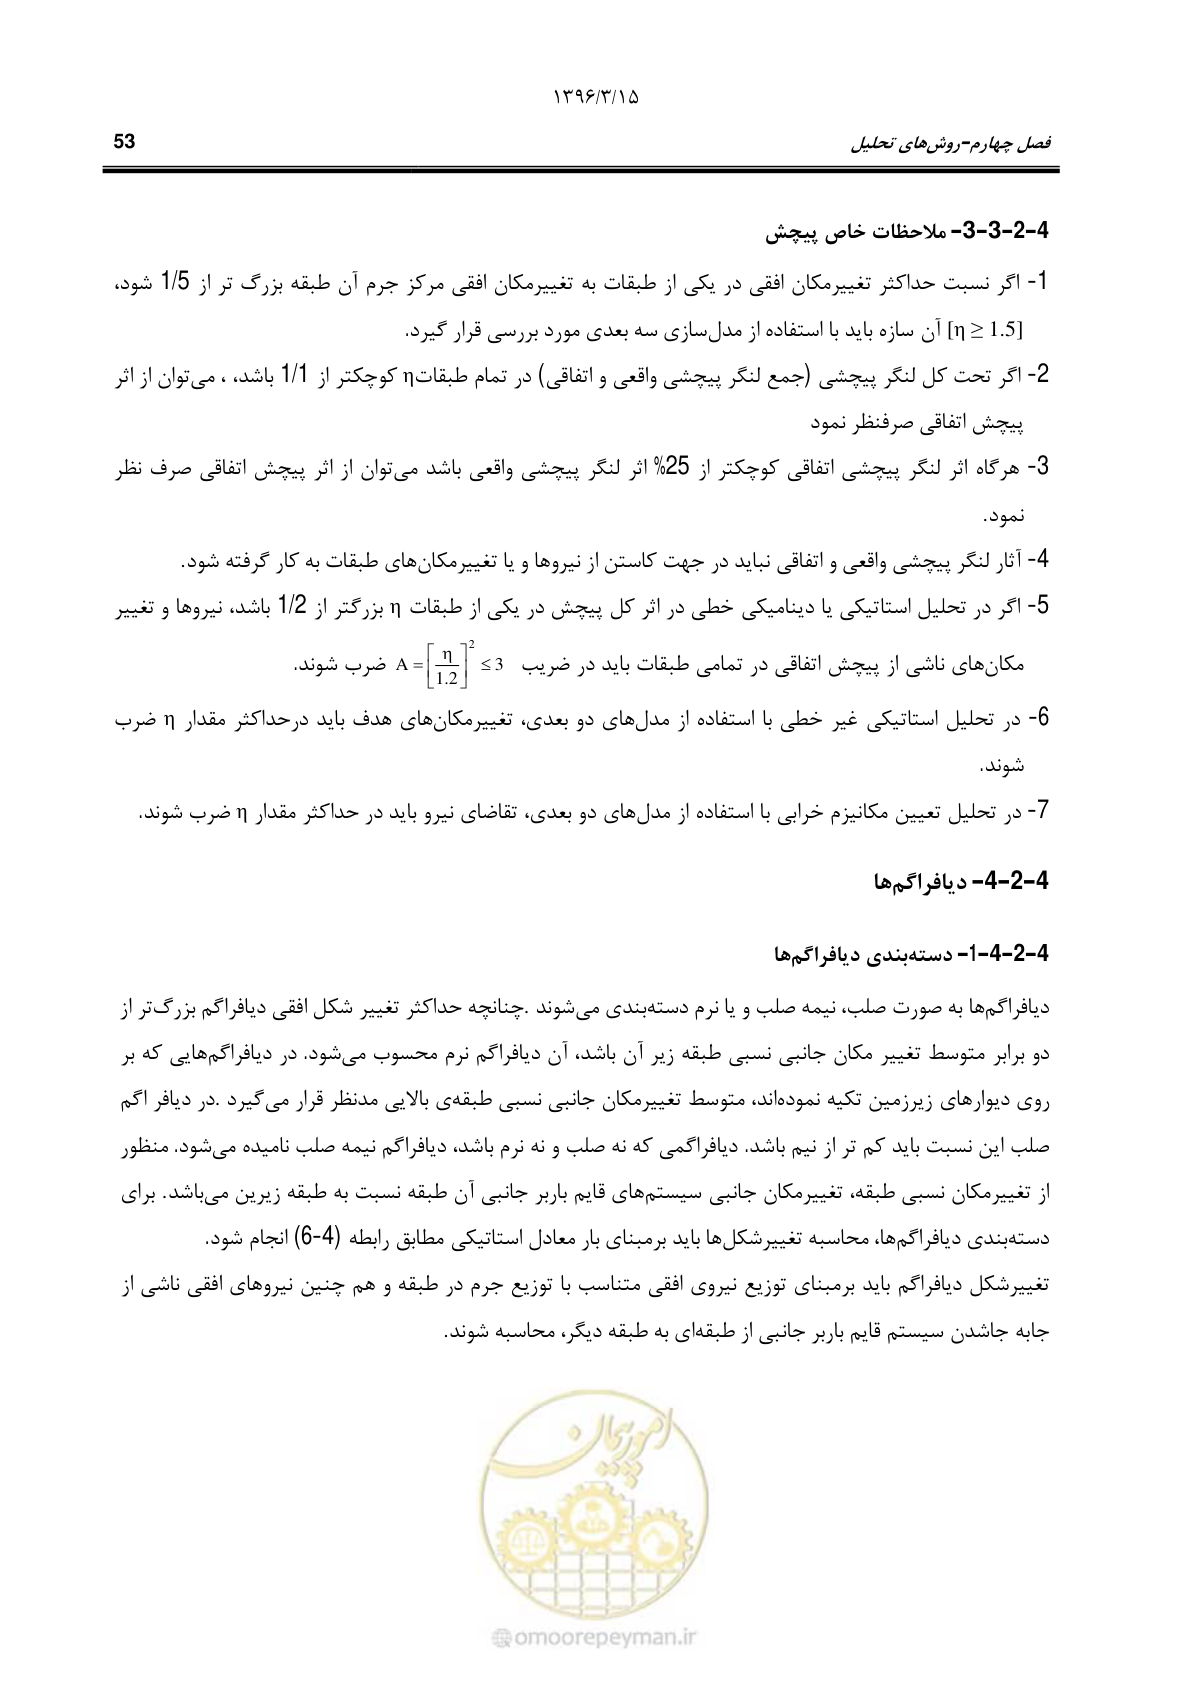 ۱۳۹۶/۳/۱۵
فصل چهارم-روش‌های تحلیل 53
4-2-3-3- ملاحظات خاص پیچش
1- اگر نسبت حداکثر تغییرمکان افقی در یکی از طبقات به تغییرمکان افقی مرکز جرم آن طبقه بزرگ تر از 1/5 شود،
[η ≥ 1.5] آن سازه باید با استفاده از مدل‌سازی سه بعدی مورد بررسی قرار گیرد.
2- اگر تحت کل لنگر پیچشی (جمع لنگر پیچشی واقعی و اتفاقی) در تمام طبقاتη کوچکتر از 1/1 باشد، ، می‌توان از اثر
پیچش اتفاقی صرفنظر نمود
3- هرگاه اثر لنگر پیچشی اتفاقی کوچکتر از 25% اثر لنگر پیچشی واقعی باشد می‌توان از اثر پیچش اتفاقی صرف نظر
نمود.
4- آثار لنگر پیچشی واقعی و اتفاقی نباید در جهت کاستن از نیروها و یا تغییرمکان‌های طبقات به کار گرفته شود.
5- اگر در تحلیل استاتیکی یا دینامیکی خطی در اثر کل پیچش در یکی از طبقات η بزرگتر از 1/2 باشد، نیروها و تغییر
مکان‌های ناشی از پیچش اتفاقی در تمامی طبقات باید در ضریب A = [η/1.2]² ≤ 3 ضرب شوند.
6- در تحلیل استاتیکی غیر خطی با استفاده از مدل‌های دو بعدی، تغییرمکان‌های هدف باید درحداکثر مقدار η ضرب
شوند.
7- در تحلیل تعیین مکانیزم خرابی با استفاده از مدل‌های دو بعدی، تقاضای نیرو باید در حداکثر مقدار η ضرب شوند.
4-2-4- دیافراگم‌ها
4-2-4-1- دسته‌بندی دیافراگم‌ها
دیافراگم‌ها به صورت صلب، نیمه صلب و یا نرم دسته‌بندی می‌شوند .چنانچه حداکثر تغییر شکل افقی دیافراگم بزرگ‌تر از
دو برابر متوسط تغییر مکان جانبی نسبی طبقه زیر آن باشد، آن دیافراگم نرم محسوب می‌شود. در دیافراگم‌هایی که بر
روی دیوارهای زیرزمین تکیه نموده‌اند، متوسط تغییرمکان جانبی نسبی طبقه‌ی بالایی مدنظر قرار می‌گیرد .در دیافر اگم
صلب این نسبت باید کم تر از نیم باشد. دیافراگمی که نه صلب و نه نرم باشد، دیافراگم نیمه صلب نامیده می‌شود. منظور
از تغییرمکان نسبی طبقه، تغییرمکان جانبی سیستم‌های قایم باربر جانبی آن طبقه نسبت به طبقه زیرین می‌باشد. برای
دسته‌بندی دیافراگم‌ها، محاسبه تغییرشکل‌ها باید برمبنای بار معادل استاتیکی مطابق رابطه (4-6) انجام شود.
تغییرشکل دیافراگم باید برمبنای توزیع نیروی افقی متناسب با توزیع جرم در طبقه و هم چنین نیروهای افقی ناشی از
جابه جاشدن سیستم قایم باربر جانبی از طبقه‌ای به طبقه دیگر، محاسبه شوند.
امور پیمان
omoorepeyman.ir